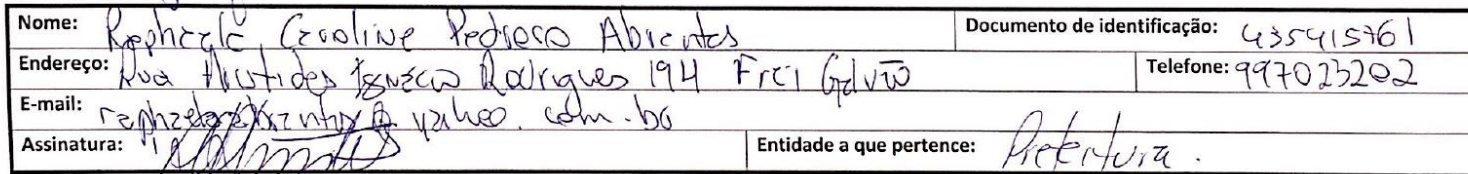 Nome: Raphaela Caroline Pedroso Abrantes Documento de identificação: 435415761
Endereço: Rua Ignácio Rodrigues 194 Frei Galvão Telefone: 997023202
E-mail: yahoo.com.br
Assinatura: Entidade a que pertence: Prefeitura.